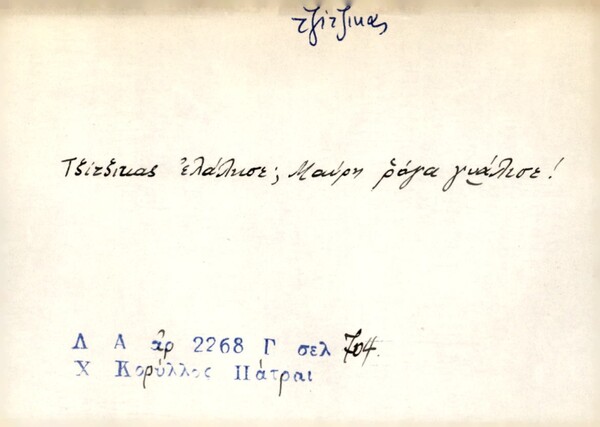 τζίτζικας
Τζίτζικας ἐλάλησε; Μαύρη ῥόγα γυάλισε!
Λ Α ἀρ 2268 Γ σελ 704.
Χ Κορύλλος Πάτραι